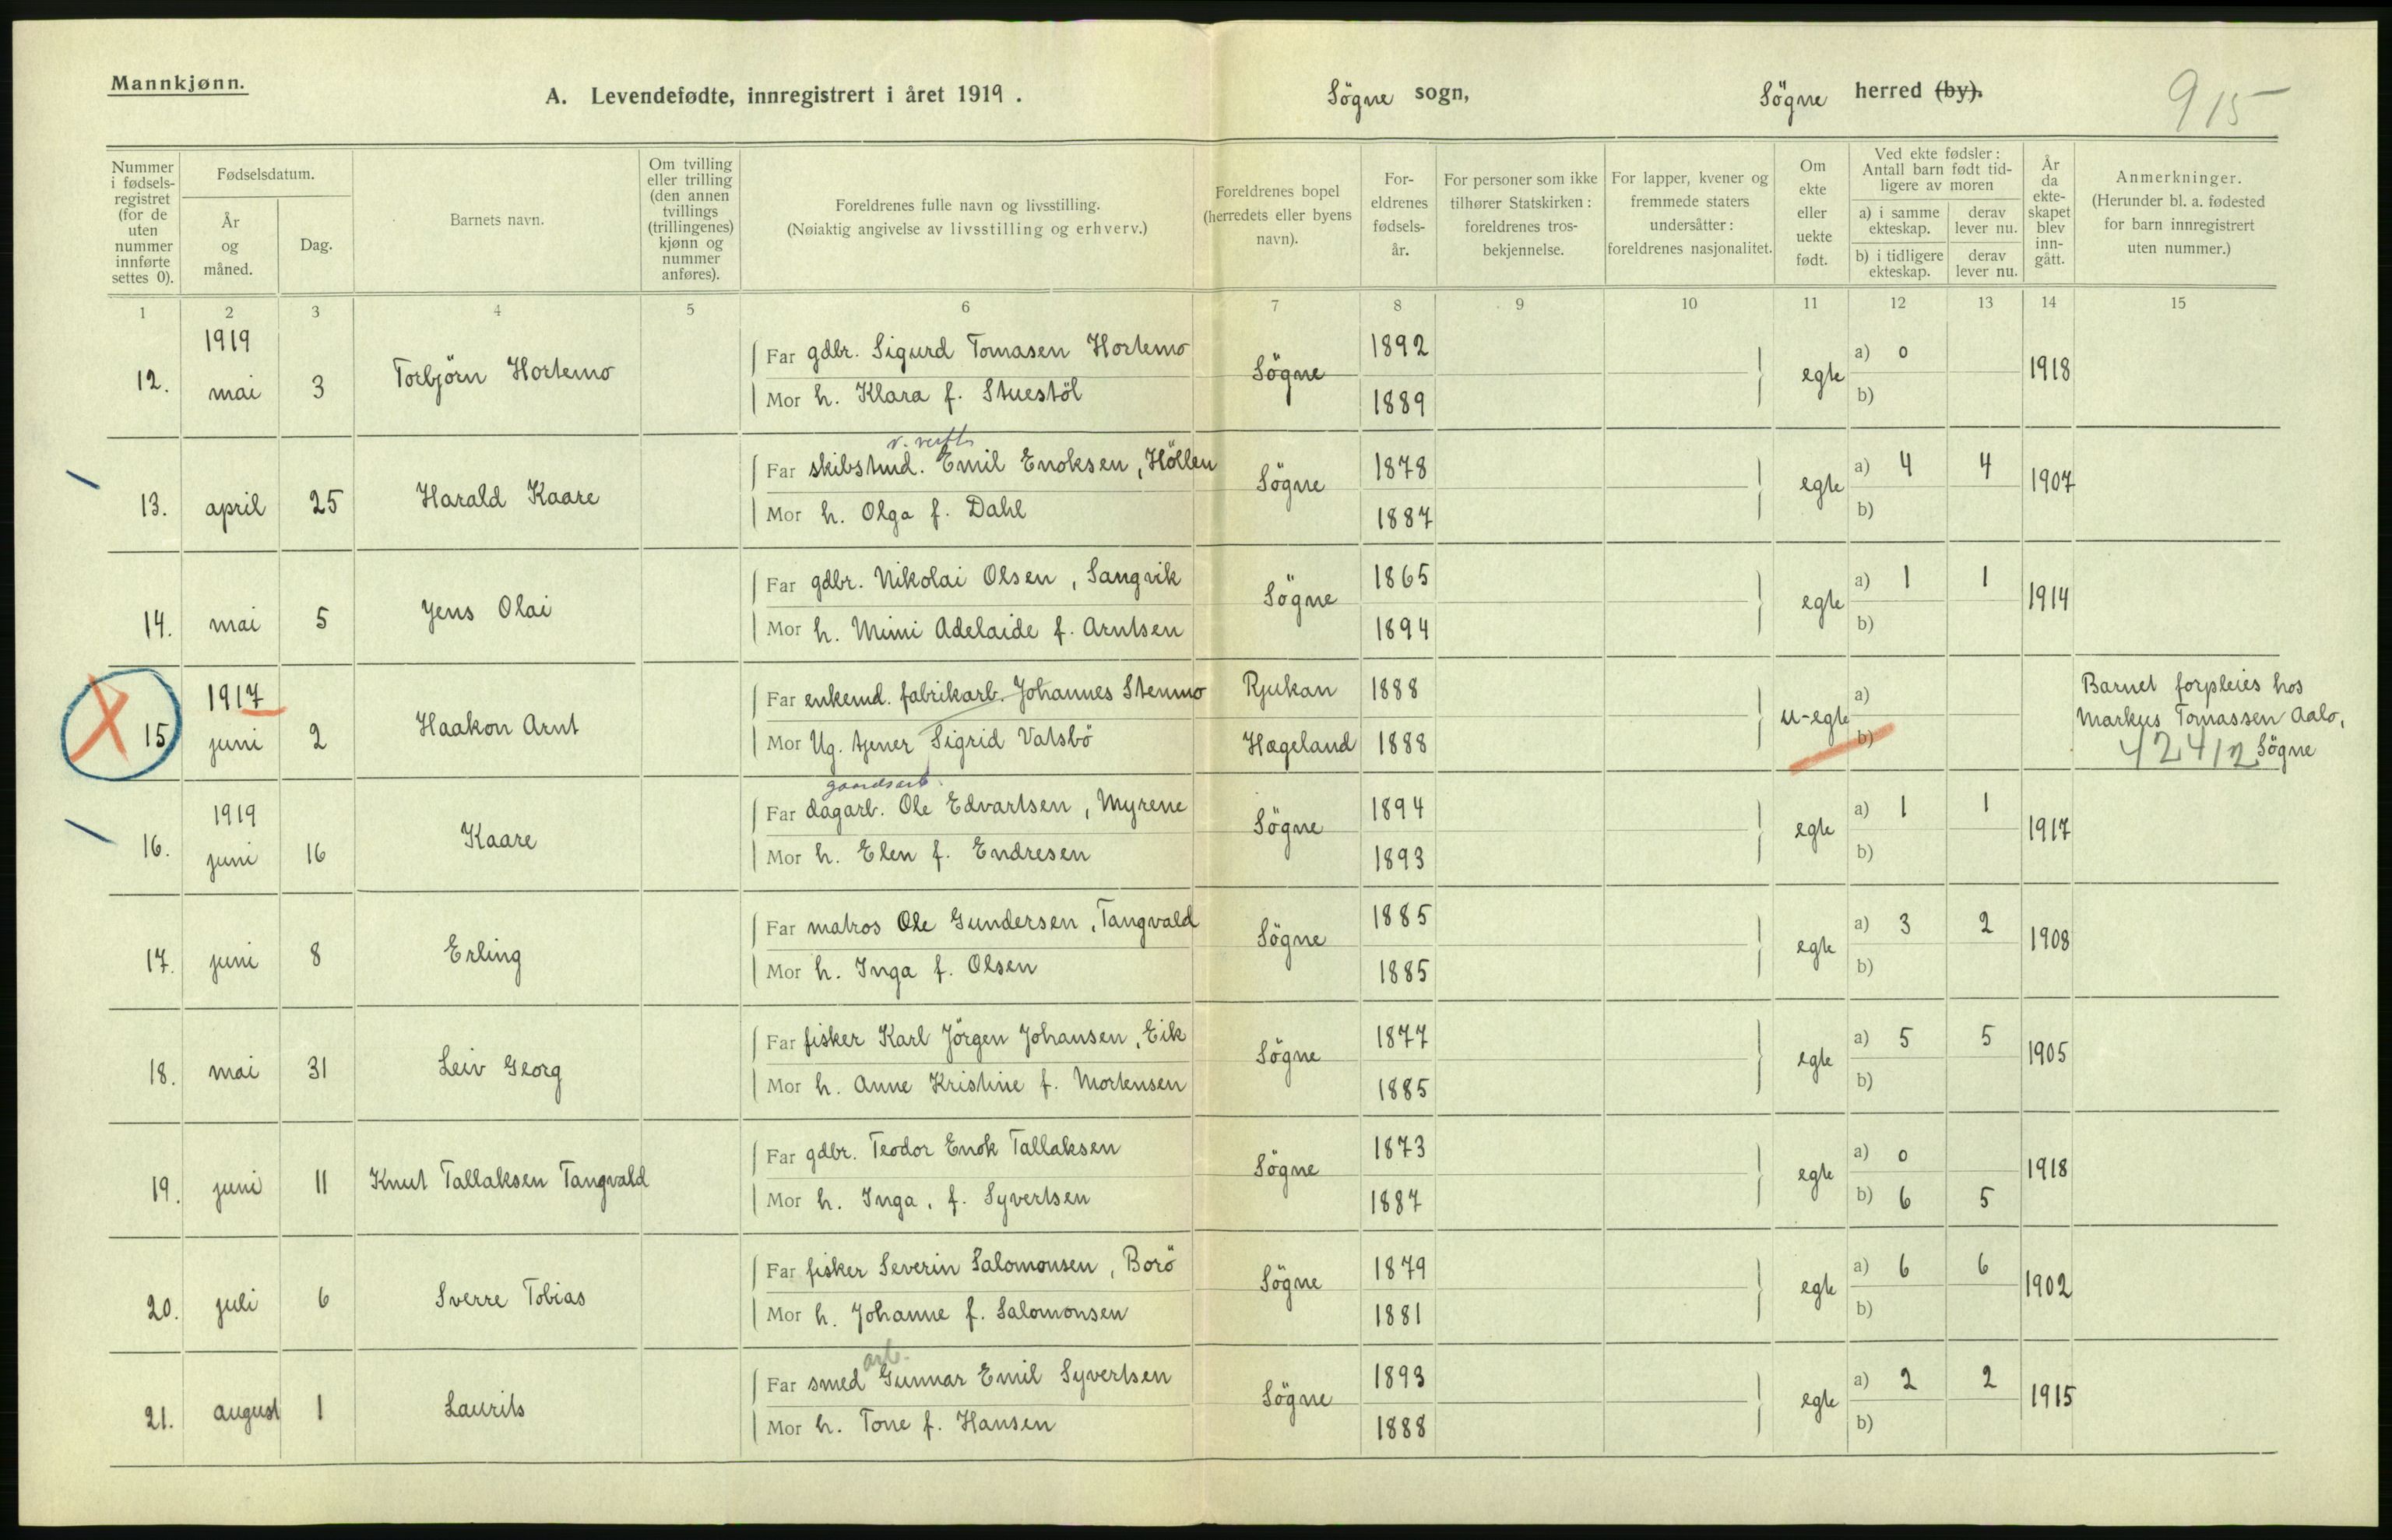 Mannkjønn.
A. Levendefødte, innregistrert i året 1919.
Sögne sogn,
Sögne herred (by).
915
Nummer i fødselsregistret (for de uten nummer innførte settes 0).
Fødselsdatum.
År og måned.
Dag.
Barnets navn.
Om tvilling eller trilling (den annen tvillings (trillingenes) kjønn og nummer anføres).
Foreldrenes fulle navn og livsstilling.
(Nøiaktig angivelse av livsstilling og erhverv.)
Foreldrenes bopel (herredets eller byens navn).
Foreldrenes fødselsår.
For personer som ikke tilhører Statskirken: foreldrenes trosbekjennelse.
For lapper, kvener og fremmede staters undersåtter: foreldrenes nasjonalitet.
Om ekte eller uekte født.
Ved ekte fødsler: Antall barn født tidligere av moren
a) i samme ekteskap.
derav lever nu.
b) i tidligere ekteskap.
derav lever nu.
År da ekteskapet blev inngått.
Anmerkninger.
(Herunder bl. a. fødested for barn innregistrert uten nummer.)
1 2 3 4 5 6 7 8 9 10 11 12 13 14 15
1919
12. mai 3 Torbjörn Hortemo
Far gdbr. Sigurd Tomasen Hortemo Sögne 1892 egte a) 0 1918
Mor h. Klara f. Stuestöl 1889 b)
v. verft
Far skibstmd. Emil Enoksen, Höllen Sögne 1878 egte a) 4 4 1907
13. april 25 Harald Kaare
Mor h. Olga f. Dahl 1887 b)
Far gdbr. Nikolai Olsen, Sangvik Sögne 1865 egte a) 1 1 1914
14. mai 5 Jens Olai
Mor h. Mimi Adelaide f. Arntsen 1894 b)
1917
Far enkemd. fabrikarb. Johannes Stenmo Rjukan 1888 u-egte a) Barnet forpleies hos
15 juni 2 Haakon Arnt
Markus Tomassen Aalo,
Mor Ug. tjener Sigrid Vatsbö Hægeland 1888 b) 42412 Sögne
gaardsarb.
1919
Far dagarb. Ole Edvartsen, Myrene Sögne 1894 egte a) 1 1 1917
16. juni 16 Kaare
Mor h. Elen f. Endresen 1893 b)
Far matros Ole Gundersen, Tangvald Sögne 1885 egte a) 3 2 1908
17. juni 8 Erling
Mor h. Inga f. Olsen 1885 b)
Far fisker Karl Jörgen Johansen, Eik Sögne 1877 egte a) 5 5 1905
18. mai 31 Leiv Georg
Mor h. Anne Kristine f. Mortensen 1885 b)
Far gdbr. Teodor Enok Tallaksen Sögne 1873 egte a) 0 1918
19. juni 11 Knut Tallaksen Tangvald
Mor h. Inga, f. Syvertsen 1887 b) 6 5
Far fisker Severin Salomonsen, Borö Sögne 1879 egte a) 6 6 1902
20. juli 6 Sverre Tobias
Mor h. Johanne f. Salomonsen 1881 b)
arb.
Far smed Gunnar Emil Syvertsen Sögne 1893 egte a) 2 2 1915
21. august 1 Laurits
Mor h. Tone f. Hansen 1888 b)